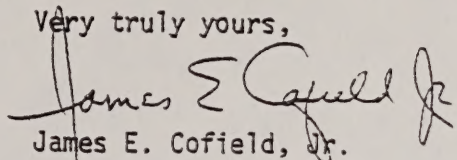 Very truly yours,
James E Cofield Jr
James E. Cofield, Jr.